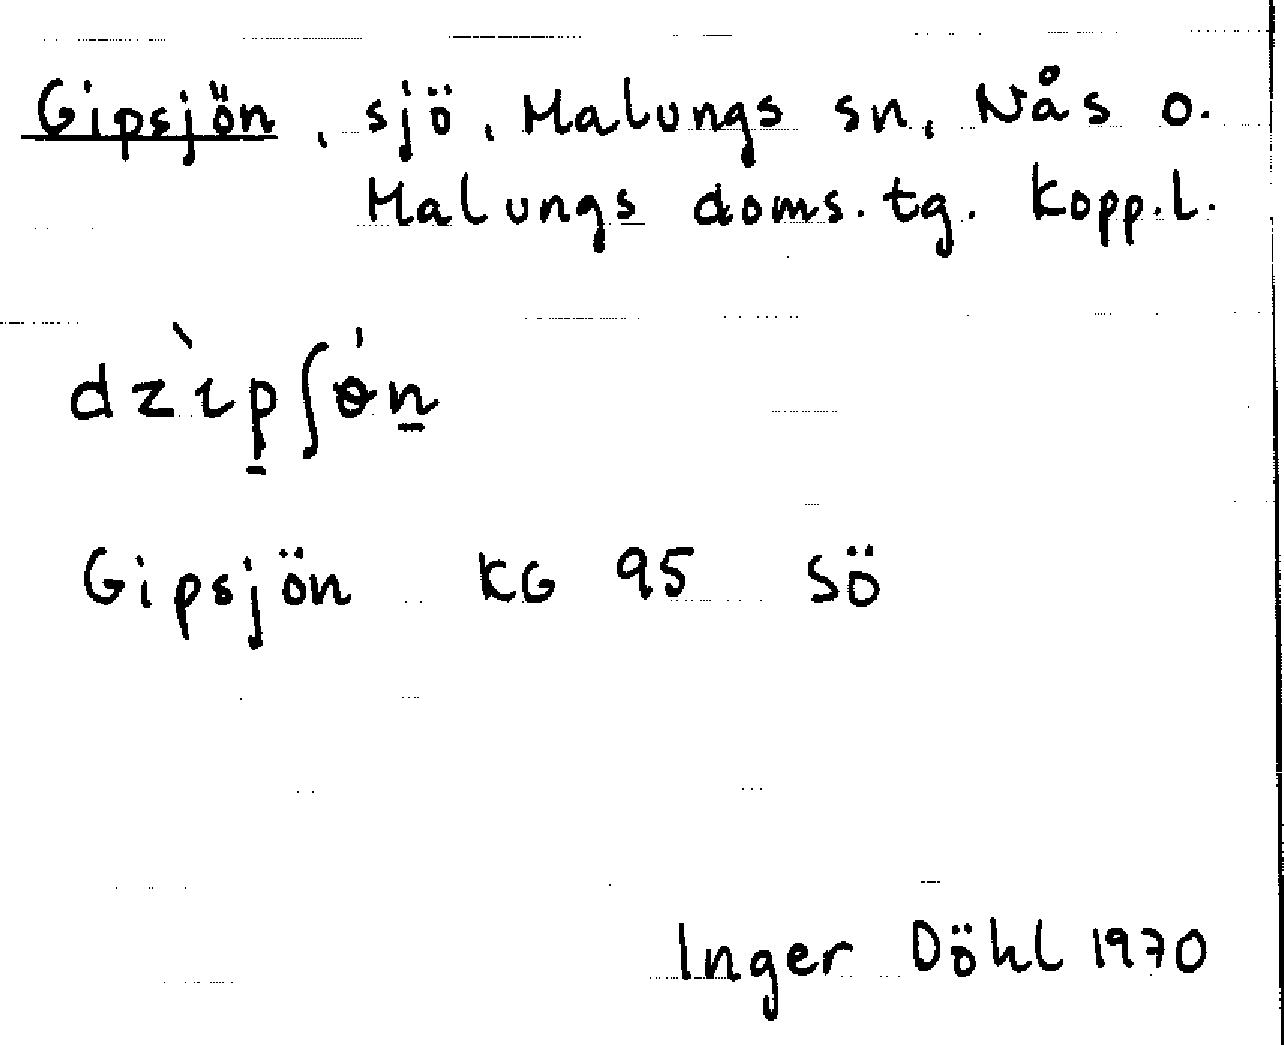 Gipsjön, sjö, Malungs sn, Nås o.
Malungs doms. tg. Kopp.l.
dzìpʃɵ́n
Gipsjön KG 95 SÖ
Inger Döhl 1970